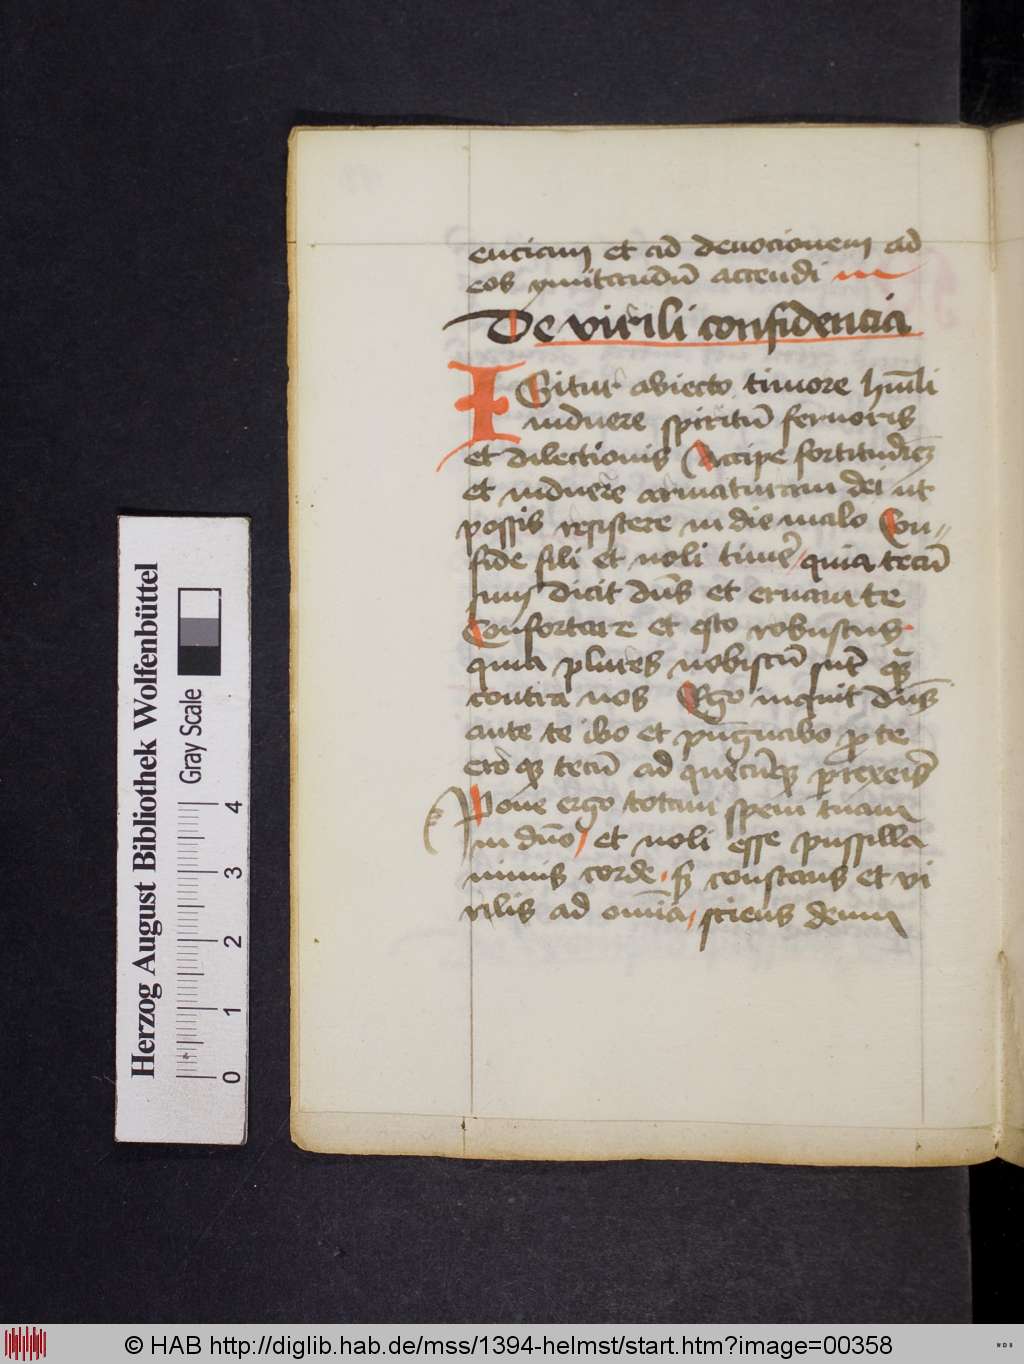 enciam et ad deuocionem ad
eos ymitandū accendi
De virili confidencia
IGitur abiecto timore hūili
induere spiritū feruoris
et dilectionis Accipe fortitudīez
et induere armaturam dei ut
possis resistere in die malo Con〃
fide fili et noli timeˀ quia tecū
sum dicit dn̄s et eruam te
Confortare et esto robustus
quia plures nobiscū sūt qͣ
contra nos Ego inquit dn̄s
ante te ibo et pugnabo ꝓ te
ero qꝫ tecū ad quecūqꝫ ꝑrexeris
Pone ergo totam spem tuam
in dn̄o et noli esse pussilla
nimis corde sꝫ constans et vi
rilis ad om̄ia sciens deum
Herzog August Bibliothek Wolfenbüttel
Gray Scale
0 1 2 3 4
© HAB http://diglib.hab.de/mss/1394-helmst/start.htm?image=00358